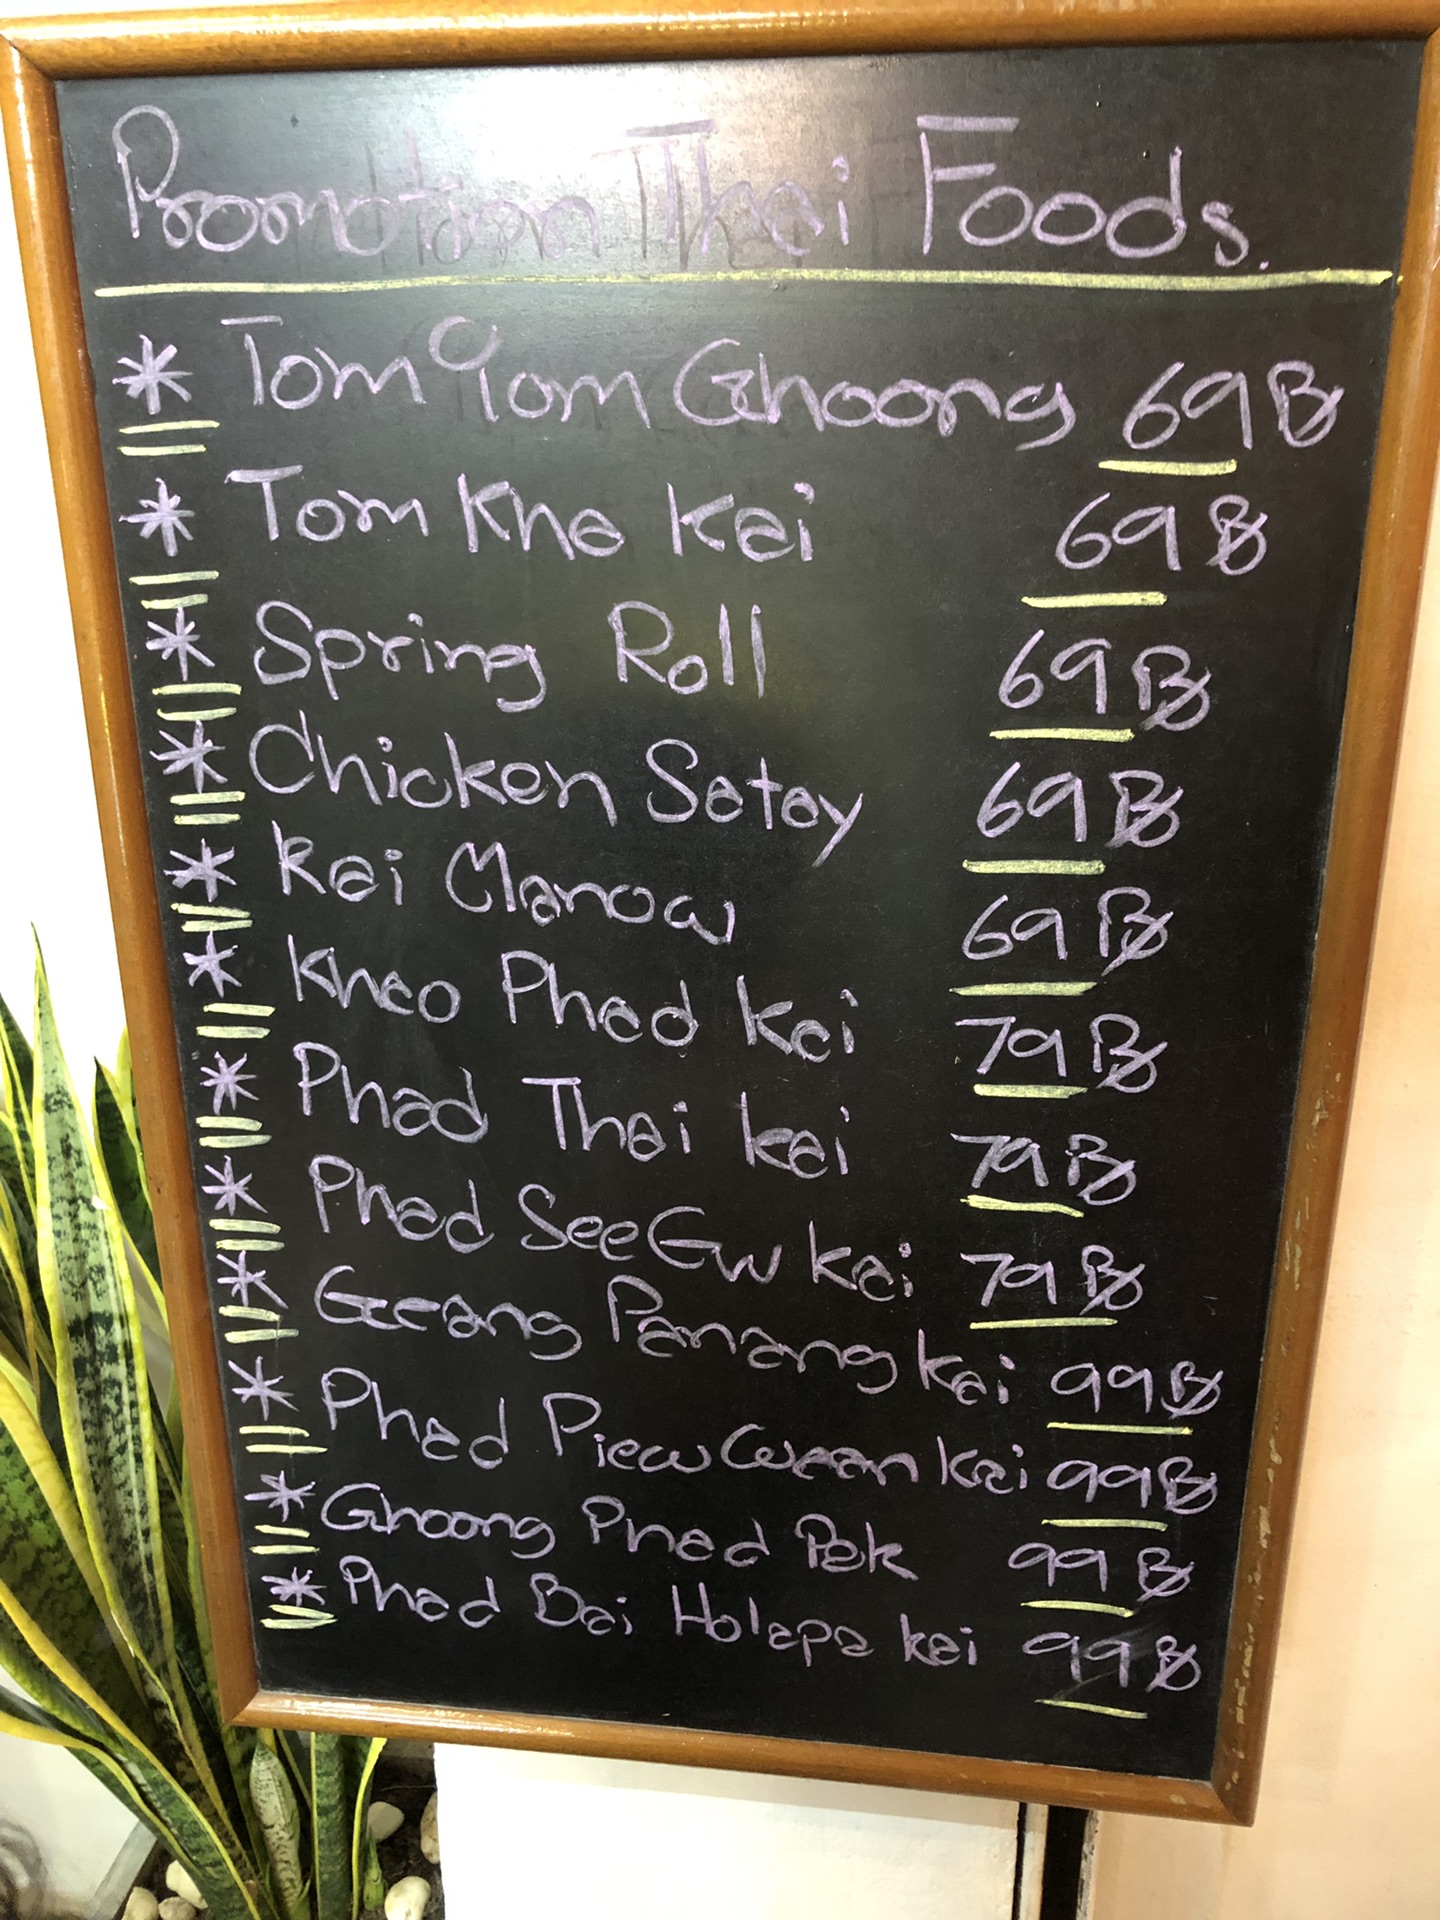 Promotion Thai Foods.
* Tom Yom Ghoong 69฿
* Tom Kha Kai 69฿
* Spring Roll 69฿
* Chicken Satay 69฿
* Kai Manow 69฿
* Khao Phad Kai 79฿
* Phad Thai Kai 79฿
* Phad See Ew Kai 79฿
* Geeang Panang Kai 99฿
* Phad Piew Waan Kai 99฿
* Ghoong Phad Pak 99฿
* Phad Bai Holapa Kai 99฿